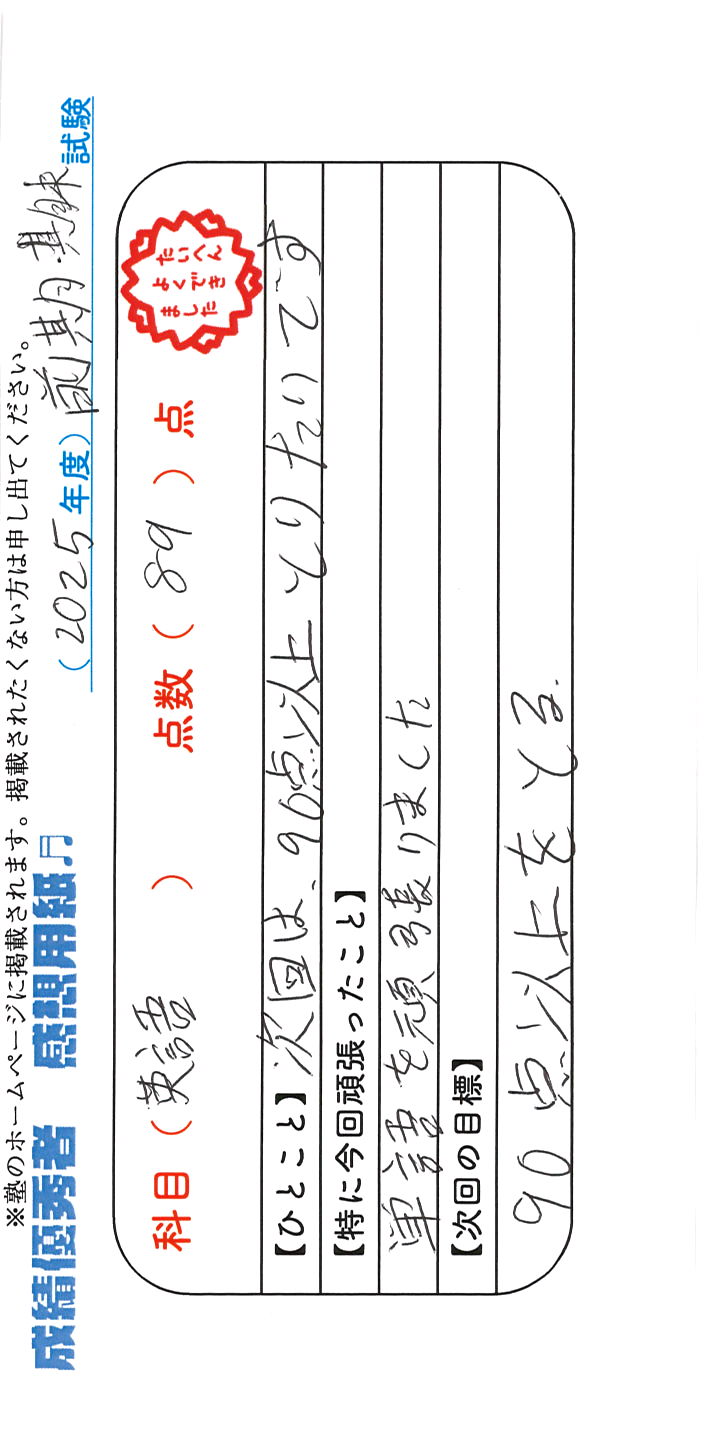 ※塾のホームページに掲載されます。掲載されたくない方は申し出てください。
成績優秀者 感想用紙♬ （2025年度）前期・期末試験
科目（英語） 点数（89）点
たいへん
よくでき
ました
【ひとこと】次回は、90点以上とりたいです
【特に今回頑張ったこと】
単語を頑張りました
【次回の目標】
90点以上をとる.